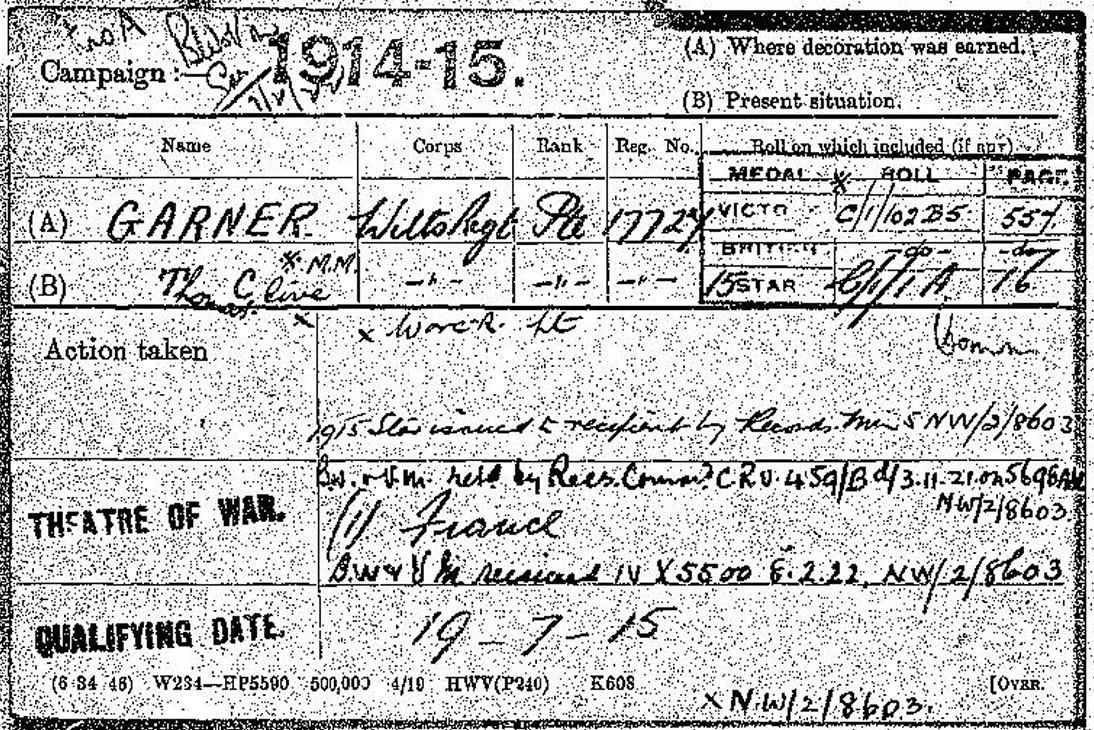 Campaign :— 1914-15.
(A) Where decoration was earned.
(B) Present situation.
Name Corps Rank Reg. No. Roll on which included (if any)
MEDAL ROLL PAGE
(A) GARNER. Wilts Regt Pte 17727 VICTO C/1/102 B5 557
BRITISH -do- -do-
(B) Thomas Clive * M.M. —"— —"— —"— 15 STAR C/1/1 A 16
x Worc. R. Lt
Action taken
1915 Star issued to recipient by Records NW/2/8603
held by 3.11.21
NW/2/8603
THEATRE OF WAR. (1) France
B.W & V M IV X5500 2.22, NW/2/8603
QUALIFYING DATE. 19 - 7 - 15
(6 34 46) W234—HP5590 500,000 4/19 HWV(P240) K608 [OVER.
x N.W/2/8603.